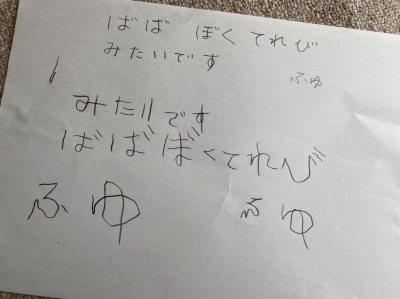 ばば ぼく てれび
みたいです
ふゆ
みたいです
ばばぼくてれび
ふゆ ふゆ